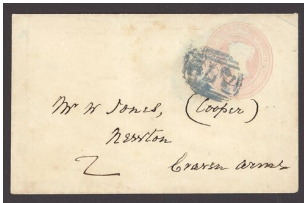 Mr W Jones, (Cooper)
Newton
Craven Arms